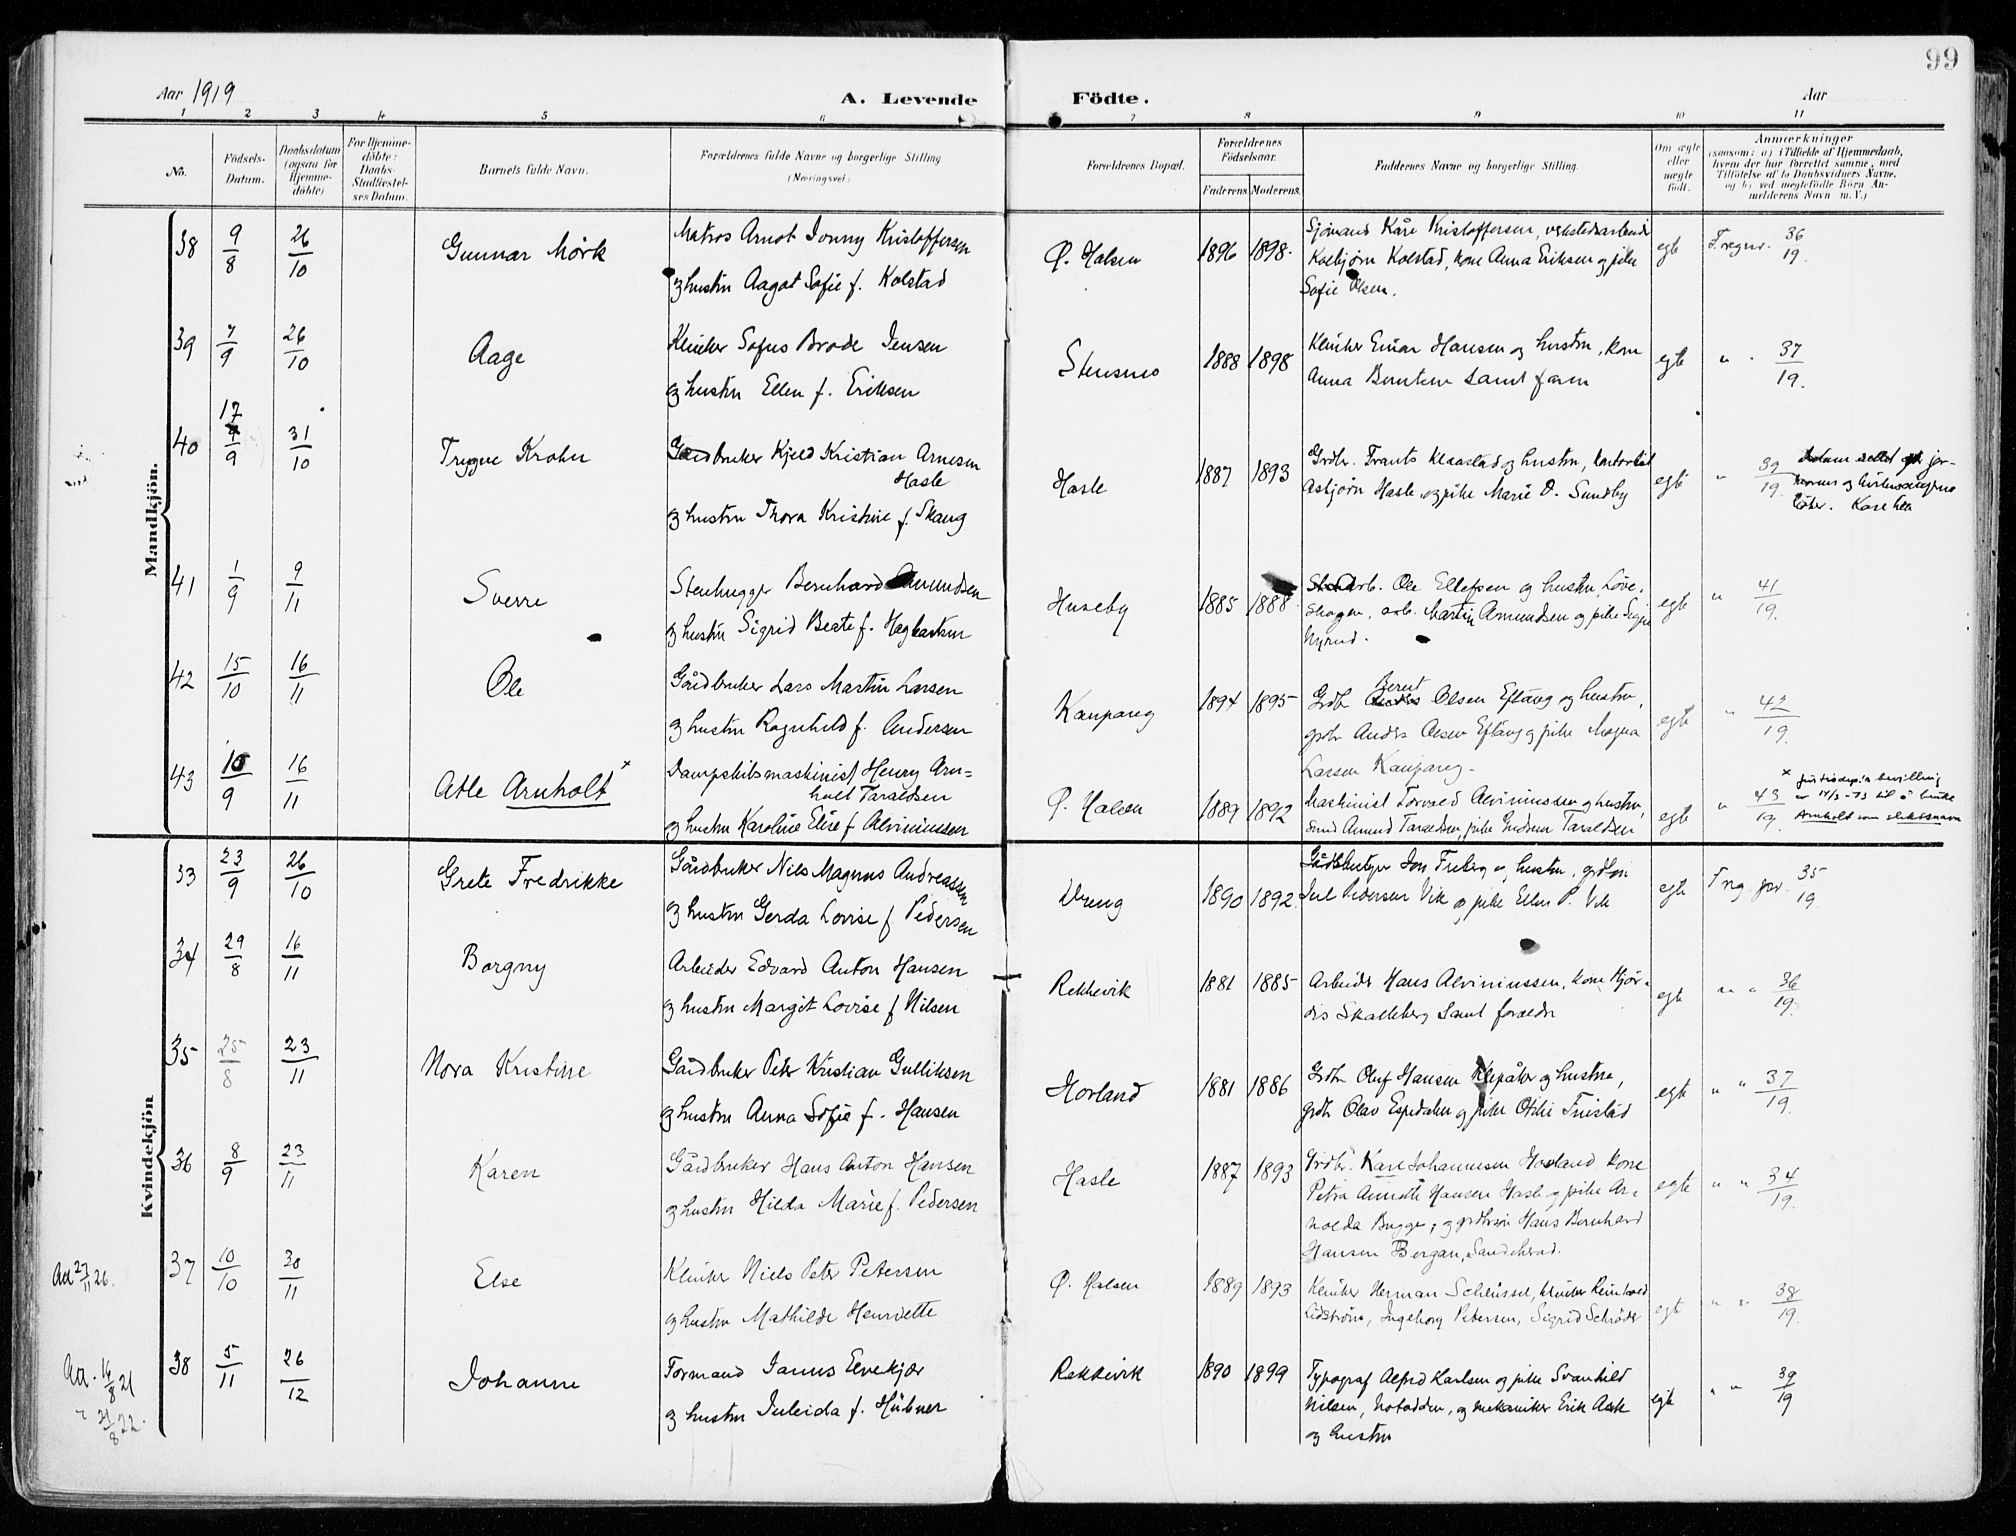 99
Aar 1919
A. Levende Födte.
Aar
1 2 3 4 5 6 7 8 9 10 11
No.
Födsels-Datum.
Daabsdatum (ogsaa for Hjemmedöbte)
For Hjemmedöbte: Daabs-Stadfæstelses Datum.
Barnets fulde Navn.
Forældrenes fulde Navne og borgerlige Stilling (Næringsvei.)
Forældrenes Bopæl.
Forældrenes Födselsaar.
Faderens. Moderens.
Faddernes Navne og borgerlige Stilling.
Om ægte eller uægte födt.
Anmærkninger
(saasom: a) i Tilfælde af Hjemmedaab, hvem der har forrettet samme, med Tilföielse af to Daabsvidners Navne, og b) ved uegtefödte Börn Anmelderens Navn m. V.)
Mandkjön.
38 9/8 26/10 Gunnar Mörk
Matros Arnot Jonny Kristoffersen
og hustru Aagot Sofie f. Kolstad
Ø. Halsen 1896 1898.
Sjömand Kåre Kristoffersen, verkstedsarbeider
Kolbjörn Kolstad, kone Anna Eriksen og pike
Sofie Olsen.
egte Fregnr. 36/19.
39 7/9 26/10 Aage
Klinker Sofus Brode Jensen
og hustru Ellen f. Eriksen
Stensnes 1888 1898
Klinker Einar Hansen og hustru, kone
Anna Berntsen samt faren
egte " 37/19.
40 17/9 31/10 Trygve Krohn
Gårdbruker Kjeld Kristian Arnesen
Hasle
og hustru Thora Kristine f. Skaug
Hasle 1887 1893
Grdbr. Frants Klaastad og hustru, kontorist
Asbjørn Hasle, og pike Marie O. Sundby
egte " 39/19.
41 1/9 9/11 Sverre
Stenhugger Bernhard Amundsen
og hustru Sigrid Beate f. Hagbartsen
Huseby 1885 1888
arb. Ole Ellefsen og hustru, Löve-
skogen, arb. Martin Amundsen og pike Signe
Nyrud.
egte " 41/19.
42 15/10 16/11 Ole
Gårdbruker Lars Martin Larsen
og hustru Ragnhild f. Andersen
Kaupang 1894 1895
Grdbr Bernt Olsen Eftang og hustru,
grdbr Anders Olsen Eftang og pike Magna
Larsen Kaupang.
egte " 42/19.
43 10/9 16/11 Atle Arnholt x
Dampskibsmaskinist Henry Arn=
holt Taraldsen
og hustru Karoline Elise f. Alvininssen
Ø. Halsen 1889 1892
Maskinist Torvald Alvininssen og hustru,
Smed Amund Taraldsen, pike Gudrun Taraldsen
egte " 43/19.
x Justisdep.'s bevilling
av 14/3-73 til å bruke
Arnholt som slektsnavn
Kvindekjön
33 23/9 26/10 Grete Fredrikke
Gårdbruker Nils Magnus Andreassen
og hustru Gerda Lovise f Pedersen
Vreng 1890 1892.
Jon Freberg og hustru, grdbr
Juel Pedersen Vik og pike Ellen P. Vik
egte Freg. for. 35/19.
34 29/8 16/11 Borgny
Arbeider Edvard Anton Hansen
og hustru Margit Lovise f Nilsen
Rekkevik 1881 1885
Arbeider Hans Alvininssen, kone Hjör-
dis Skalleberg samt foreldre
egte " " 36/19.
35 25/8 23/11 Nora Kristine
Gårdbruker Peter Kristian Gulliksen
og hustru Anna Sofie f. Hansen
Hovland 1881 1886
Grdbr Oluf Hansen Klepåker og hustru,
grdbr Olav Espedalen og pike Othilie Fristad
egte " " 37/19.
36 8/9 23/11 Karen
Gårdbruker Hans Anton Hansen
og hustru Hilda Marie f. Pedersen
Hasle 1887 1893
Grdbr. Kare Johannesen Hovland, kone
Petra Annette Hansen Hasle og pike Ar-
nolda Bugge, og grdbrsøn Hans Bernhard
Hansen Bergan, Sandeherad.
egte " " 34/19.
Aa 27/11 26.
37 10/10 30/11 Else
Klinker Niels Peter Petersen
og hustru Mathilde Henriette
Ø. Halsen 1889 1893
Klinker Herman Schlüssel, klinker Reinhold
Lidström, Ingeborg Petersen, Sigrid Schröder
egte " " 38/19.
Aa. 16/8 21
" 21/8 22.
38 5/11 26/12 Johanne
Formand Janus Elvekjær
og hustru Juleida f. Hübner
Rekkevik 1890 1899
Typograf Alfred Karlsen og pike Svanhild
Nilsen, Notodden, og mekaniker Erik Ask
og hustru
egte " " 39/19